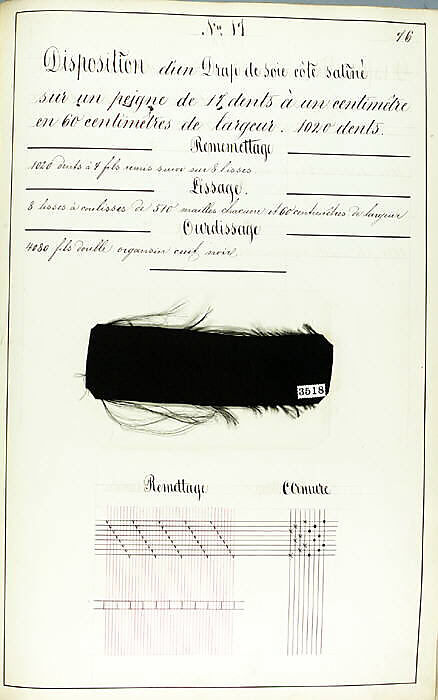 No 17
76
Disposition d'un Drap de Soie côté satiné
sur un peigne de 17 dents à un centimètre
en 60 centimètres de largeur. 1020 dents.
Rememettage
1020 dents à 4 fils remis suivi sur 8 lisses
Lissage.
8 lisses à coulisses de 510 mailles chacune et 60 centimètres de largeur
Ourdissage
4080 fils double organsin cuit noir.
3518
Remettage
Armure